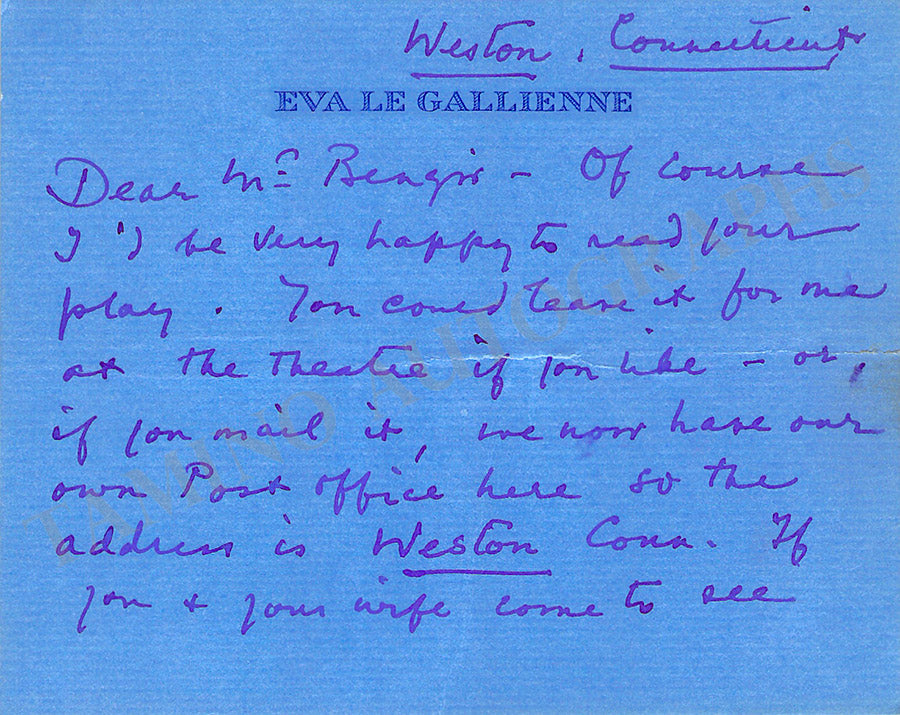 Weston, Connecticut
EVA LE GALLIENNE
Dear Mr Bengis - Of course
I'd be very happy to read your
play. You could leave it for me
at the theatre if you like - or,
if you mail it, we now have our
own Post office here so the
address is Weston Conn. If
you + your wife come to see
TAMINO AUTOGRAPHS